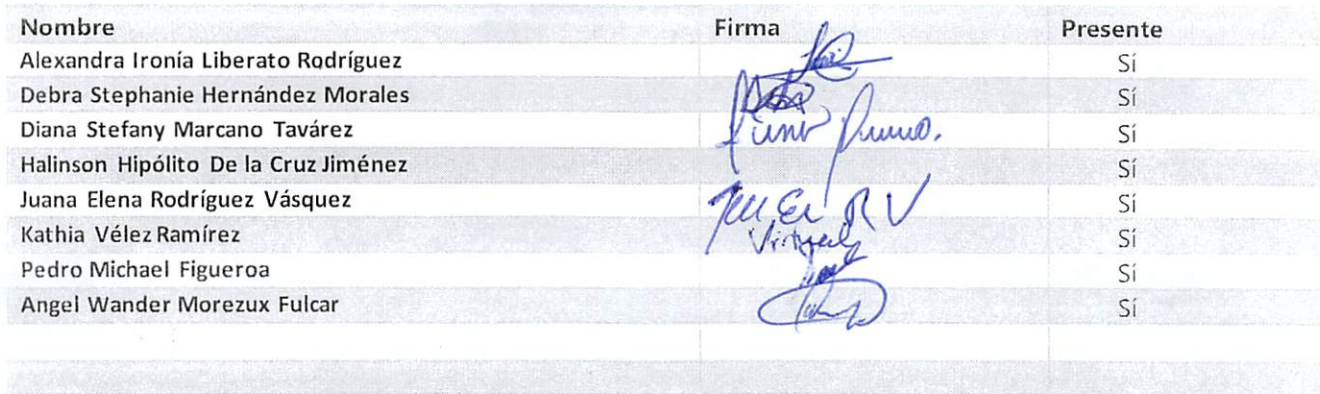 Nombre Firma Presente
Alexandra Ironía Liberato Rodríguez Sí
Debra Stephanie Hernández Morales Sí
Diana Stefany Marcano Tavárez Sí
Halinson Hipólito De la Cruz Jiménez Sí
Juana Elena Rodríguez Vásquez Sí
Kathia Vélez Ramírez Virtual Sí
Pedro Michael Figueroa Sí
Angel Wander Morezux Fulcar Sí